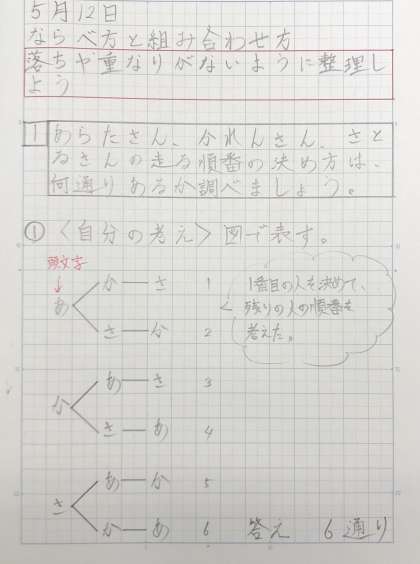 5月12日
ならべ方と組み合わせ方
落ちや重なりがないように整理し
よう
1 あらたさん、かれんさん、さと
るさんの走る順番の決め方は、
何通りあるか調べましょう。
① 〈自分の考え〉図で表す。
頭文字
↓
あ
か ー さ 1
さ ー か 2
1番目の人を決めて、
残りの人の順番を
考えた。
か
あ ー さ 3
さ ー あ 4
さ
あ ー か 5
か ー あ 6 答え 6通り